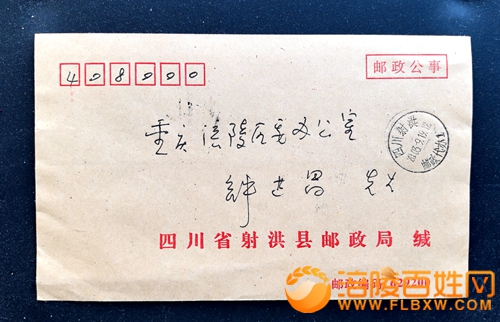 408000
邮政公事
重庆涪陵区委办公室
四川射洪
钟世昌 先生
四川省射洪县邮政局 缄
邮政编码 629200
涪陵百姓网
WWW.FLBXW.COM